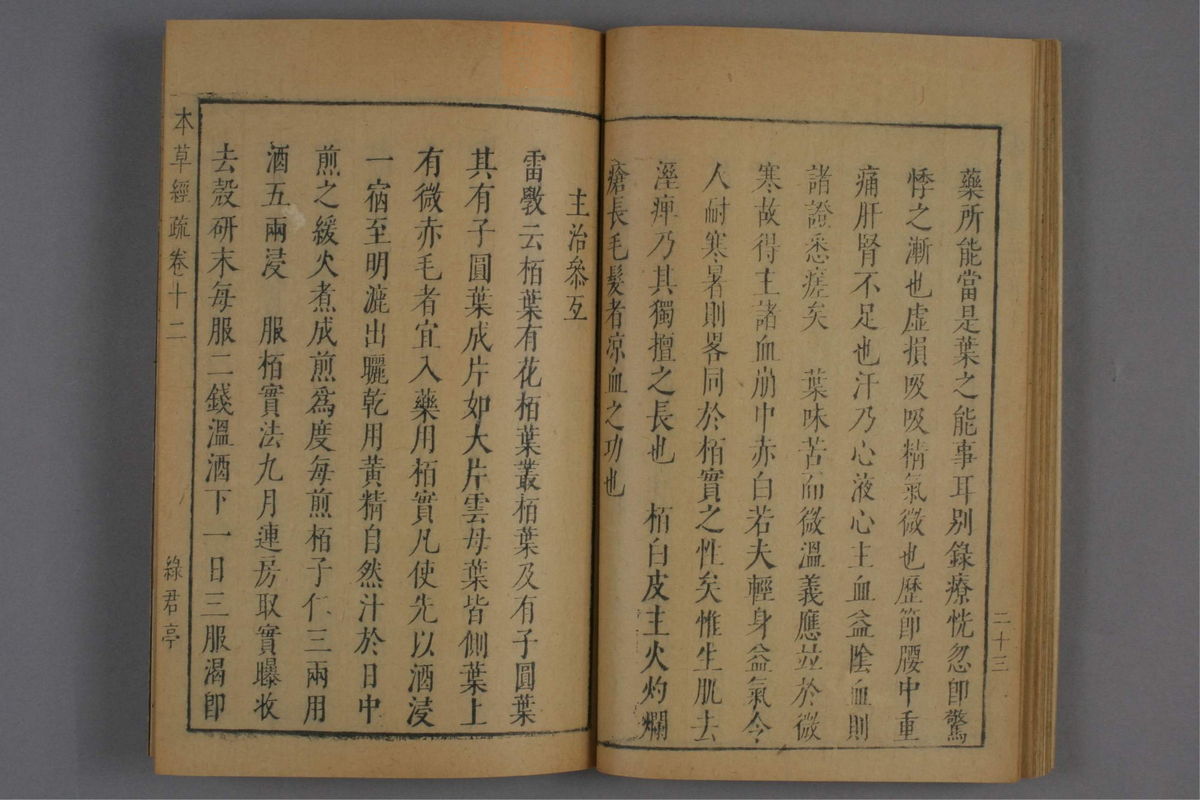 藥所能當是葉之能事耳別錄療恍忽卽驚
悸之漸也虛損吸吸精氣微也歷節腰中重
痛肝腎不足也汗乃心液心主血益陰血則
諸證悉瘥矣　葉味苦而微溫義應竝於微
寒故得主諸血崩中赤白若夫輕身益氣令
人耐寒暑則畧同於栢實之性矣惟生肌去
溼痺乃其獨擅之長也　栢白皮主火灼爛
瘡長毛髮者凉血之功也
二十三
主治叅互
雷斆云栢葉有花栢葉叢栢葉及有子圓葉
其有子圓葉成片如大片雲母葉皆側葉上
有微赤毛者宜入藥用栢實凡使先以酒浸
一宿至明漉出曬乾用黃精自然汁於日中
煎之緩火煮成煎爲度每煎栢子仁三兩用
酒五兩浸　服栢實法九月連房取實曝收
去殼硏末每服二錢溫酒下一日三服渴卽
本草經疏卷十二
綠君亭